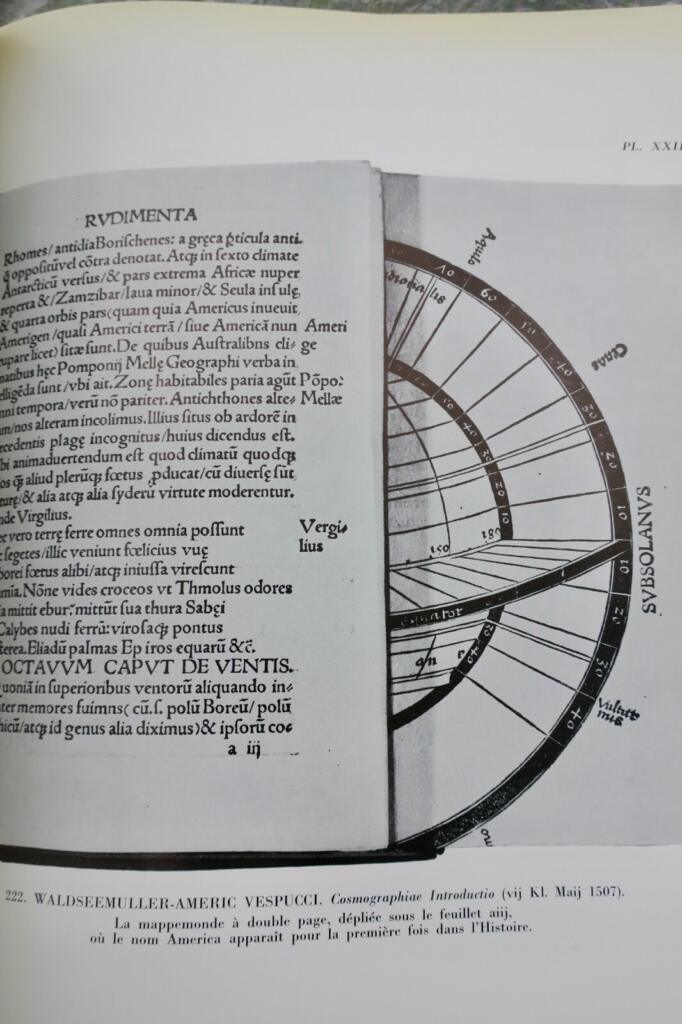 PL. XXII
RVDIMENTA
Rhomes/antidiaBorischenes: a gręca p̃ticula anti.
q̃ oppositũvel cõtra denotat. Atqꝫ in sexto climate
Antarcticũ versus/& pars extrema Africæ nuper
reperta &/Zamzibar/Iaua minor/& Seula insulę
& quarta orbis pars (quam quia Americus inueuit
Amerigen/quasi Americi terrã/siue Americã nun Ameri
cupare licet) sitæ sunt. De quibus Australibns cli- ge
matibus hęc Pomponij Mellę Geographi verba in
elligẽda sunt/vbi ait. Zonę habitabiles paria agũt Põpo:
nni tempora/verũ nõ pariter. Antichthones alte- Mellæ
um/nos alteram incolimus. Illius situs ob ardorẽ in
rcedentis plagę incognitus/huius dicendus est.
bi animaduertendum est quod climatũ quodqꝫ
os qꝫ aliud plerũqꝫ fœtus ꝓducat/cũ diuersę sũt
turę/& alia atqꝫ alia syderũ virtute moderentur.
nde Virgilius.
ec vero terrę ferre omnes omnia possunt Vergi-
t segetes/illic veniunt fœlicius vuę lius
borei fœtus alibi/atqꝫ iniussa virescunt
mia. Nõne vides croceos vt Thmolus odores
a mittit ebur: mittũt sua thura Sabęi
Calybes nudi ferrũ: virosaqꝫ pontus
terea. Eliadũ palmas Ep iros equarũ &c̃.
OCTAVVM CAPVT DE VENTIS.
Quoniã in superioribus ventorũ aliquando in-
ter memores fuimns( cũ.s. polũ Boreũ/polũ
hicũ/atqꝫ id genus alia diximus)& ipsorũ co-
a iij
Aquilo
70
60
50
40
30
20
10
50
40
30
20
10
150
180
SVBSOLANVS
Equator
10
20
30
40
222. WALDSEEMULLER-AMERIC VESPUCCI. Cosmographiae Introductio (vij Kl. Maij 1507).
La mappemonde à double page, dépliée sous le feuillet aiij,
où le nom America apparaît pour la première fois dans l'Histoire.